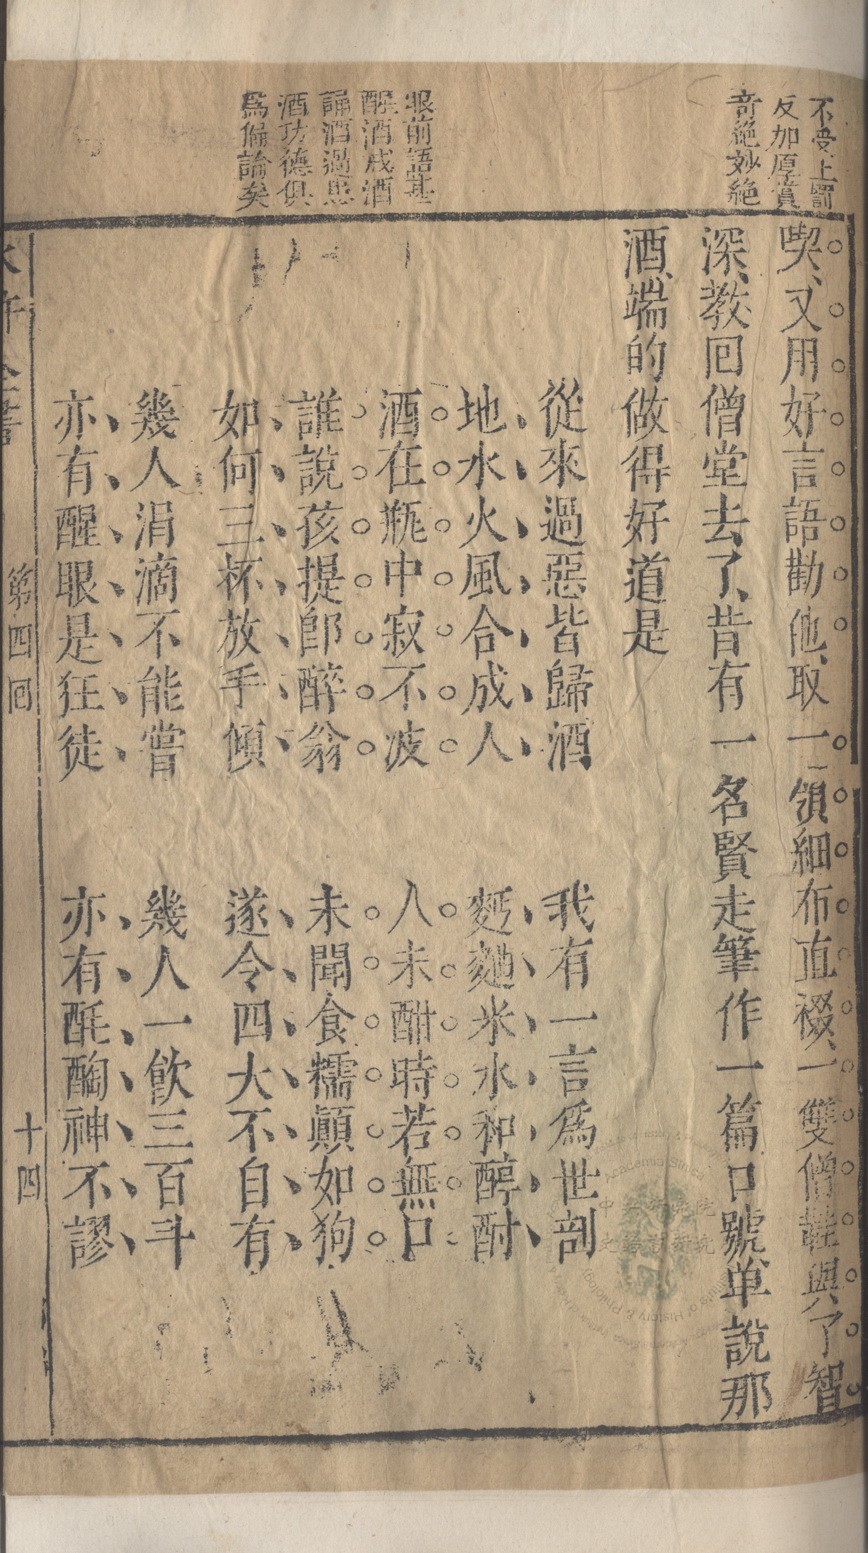 不受上罰
反加厚賞
奇絕妙絕
眼前語甚
醒酒戒酒
誦酒過患
酒功德俱
爲偏論矣
喫、又用好言語勸他、取一領細布直裰、一雙僧鞋、與了智
深、教回僧堂去了、昔有一名賢走筆作一篇口號、單說那
酒、端的做得好道是
從來過惡皆歸酒　我有一言爲世剖
地水火風合成人　麪麯米水和醇酎
酒在瓶中寂不波　人未酣時若無口
誰說孩提卽醉翁　未聞食糯顛如狗
如何三杯放手傾　遂令四大不自有
幾人涓滴不能嘗　幾人一飲三百斗
亦有醒眼是狂徒　亦有酕醄神不謬
水滸全書　第四回　十四